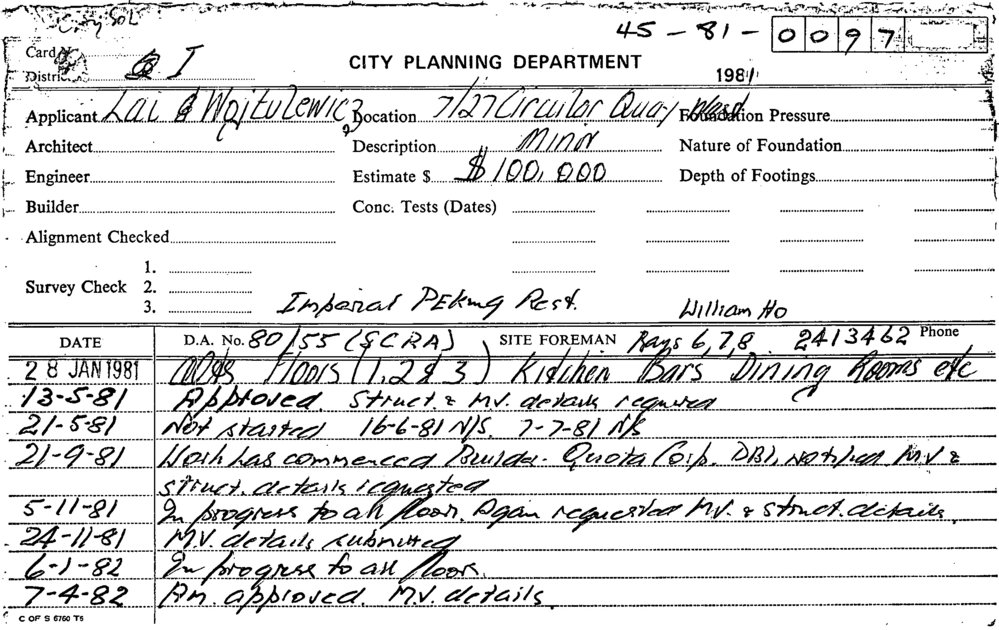 City Sol
45 - 81 - 0097
Card No.
District I
CITY PLANNING DEPARTMENT
1981
Applicant Lai & Wojtulewicz
Location 7/27 Circular Quay West
Foundation Pressure
Architect
Description Minor
Nature of Foundation
Engineer
Estimate $ $100,000
Depth of Footings
Builder
Conc. Tests (Dates)
Alignment Checked
Survey Check
1.
2.
3.
Imperial Peking Rest. William Ho
DATE D.A. No. 80/55 (SCRA) SITE FOREMAN Bays 6,7,8 2413462 Phone
28 JAN 1981 Floors (1, 2 & 3) Kitchen Bars Dining Rooms etc
13-5-81 Approved. Struct. & M.V. details required
21-5-81 Not started 16-6-81 N/S. 7-7-81 N/S
21-9-81 Work has commenced Builder- Quota Corp. DBI, notified M.V &
struct. details requested
5-11-81 In progress to all floors. Again requested M.V. & struct. details.
24-11-81 M.V. details submitted
6-1-82 In progress to all floors.
7-4-82 Am. approved. M.V. details
C OF S 6760 T5